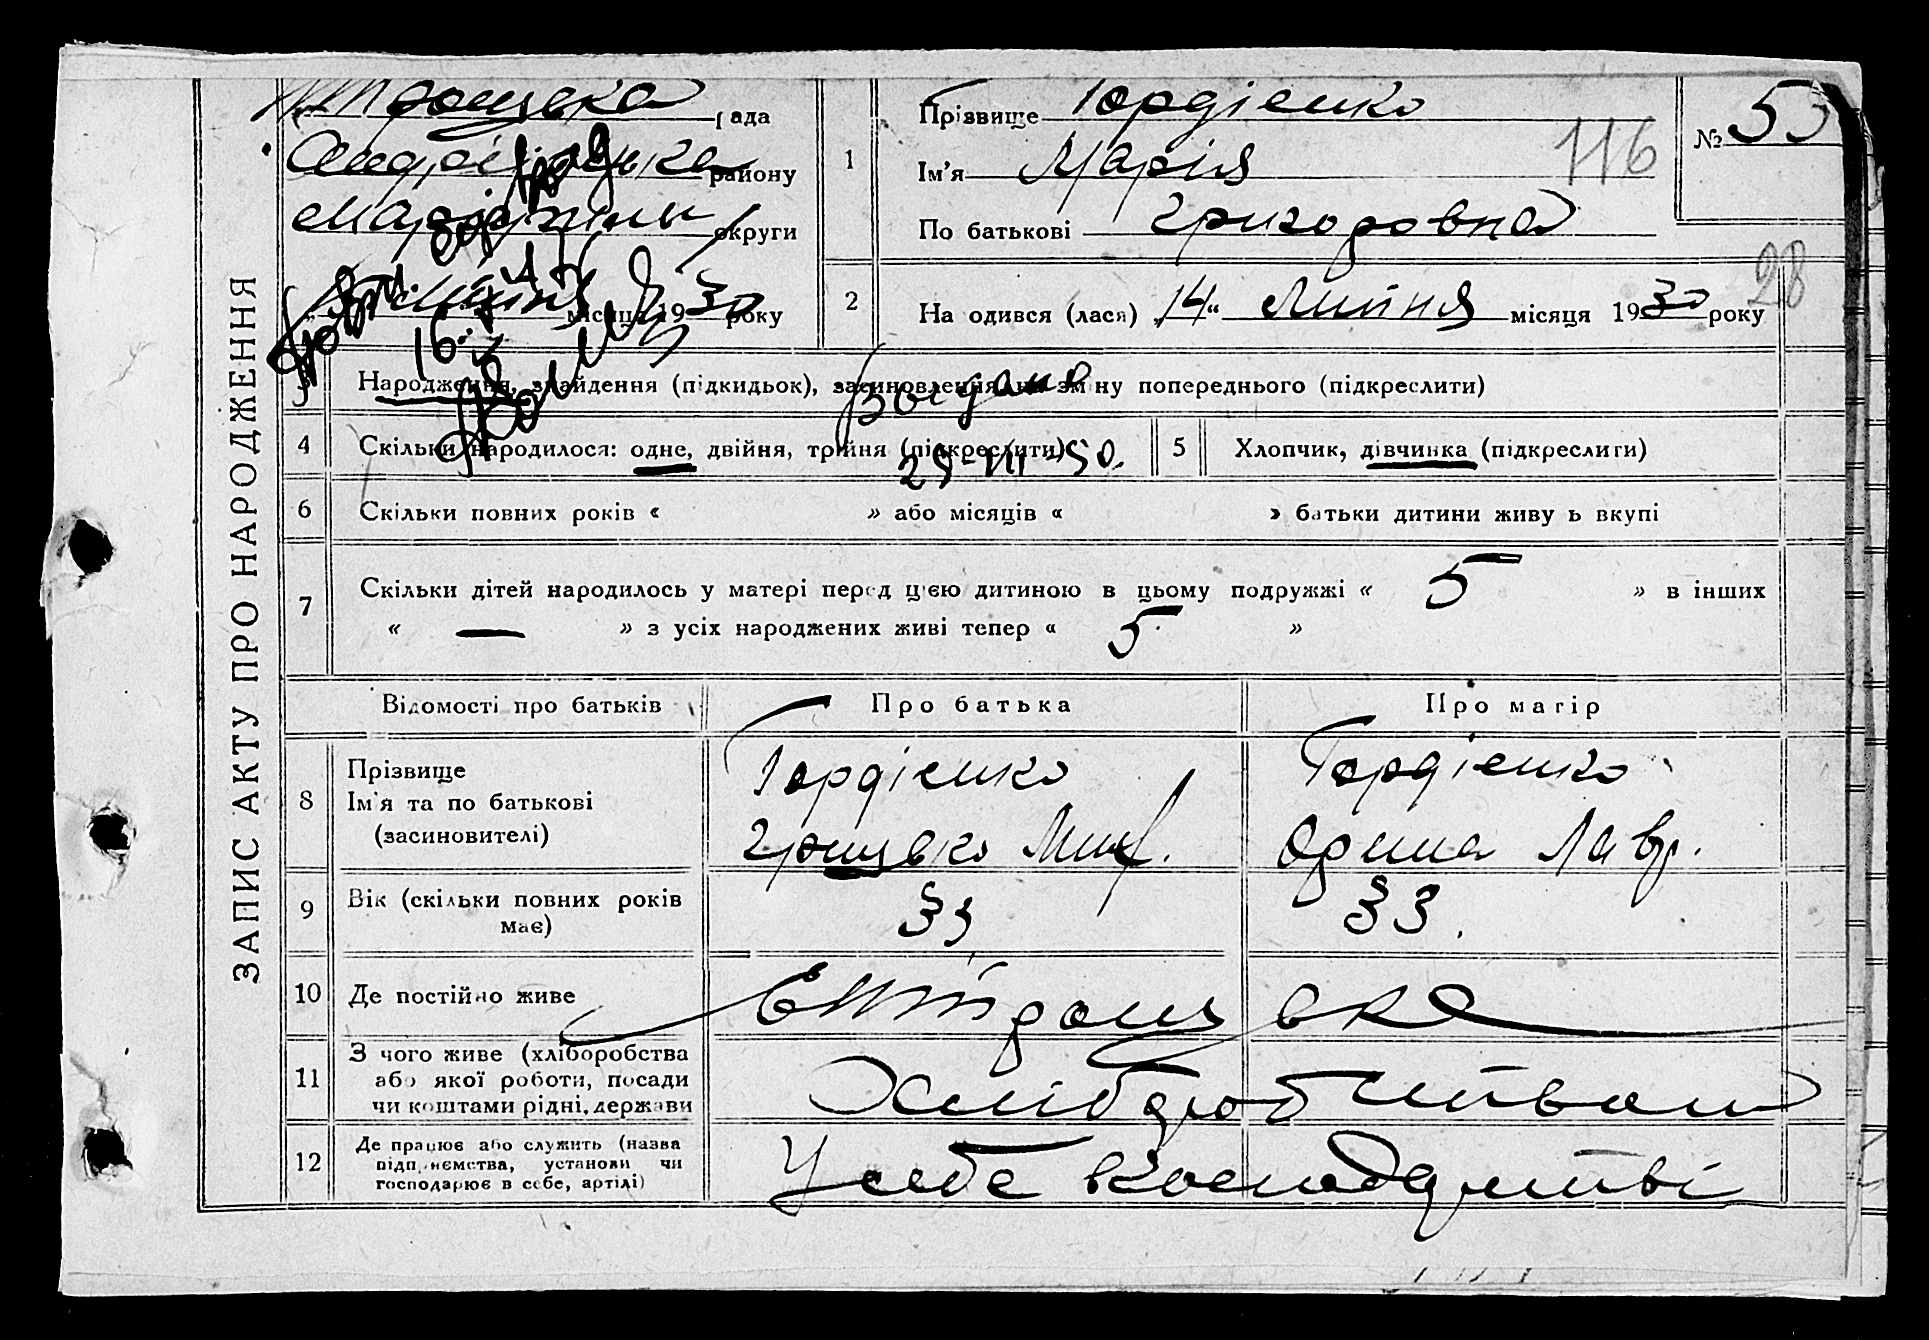 ЗАПИС АКТУ ПРО НАРОДЖЕННЯ
Троицька рада
району
округи
місяця 1930 року
1
Прізвище Гордієнко
Ім'я Марія
По батькові Григоровна
№ 53
116
28
2
На одився (лася) „14“ Липня місяця 1930 року
3
Народження, знайдення (підкидьок), засиновлення, на зміну попереднього (підкреслити)
Выдано
4
Скільки народилося: одне, двійня, трійня (підкреслити)
5
Хлопчик, дівчинка (підкреслити)
6
Скільки повних років « » або місяців « » батьки дитини живу ь вкупі
7
Скільки дітей народилось у матері перед цією дитиною в цьому подружжі « 5 » в інших
« — » з усіх народжених живі тепер « 5 »
Відомості про батьків
Про батька
Про матір
8
Прізвище
Ім'я та по батькові
(засиновителі)
Гордієнко
Мих.
Гордієнко
Орина Лавр.
9
Вік (скільки повних років
має)
33
33.
10
Де постійно живе
11
З чого живе (хліборобства
або якої роботи, посади
чи коштами рідні, держави
Хліборобством
12
Де працює або служить (назва
підп иємства, установи чи
господарює в себе, артілі)
У себе в господарстві